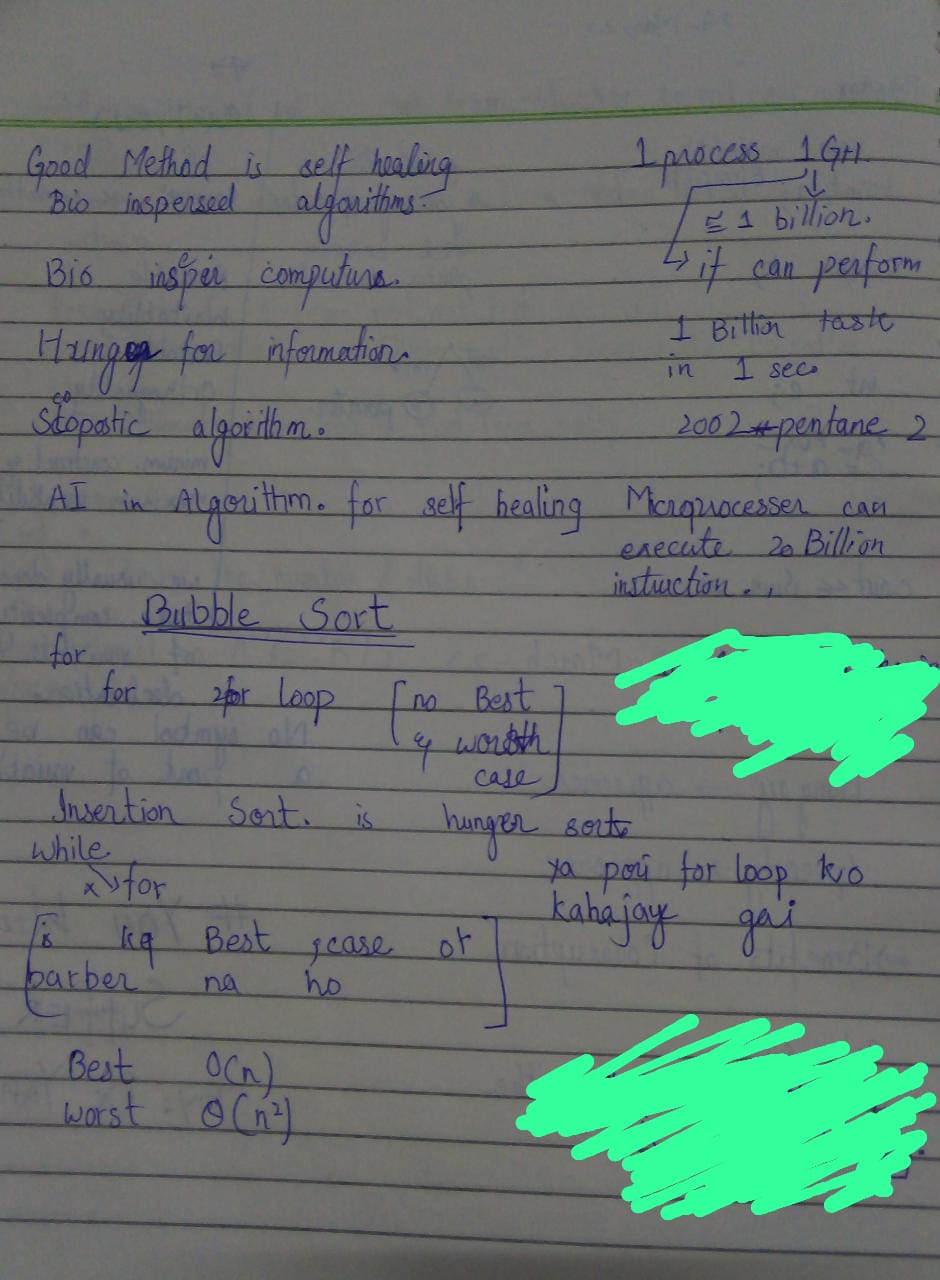 Good Method is self healing
Bio inspersed algorithms.
Bio insper computure.
Hunger for information.
Stocopastic algorithm.
AI in Algorithm. for self healing
1 process 1 GH
≅ 1 billion.
it can perform
1 Billion task
in 1 sec.
2002 pentane 2
Micrprocesser can
execute 20 Billion
instuction.
Bubble Sort
for
for 2for loop [no Best
& worsth
case]
Insertion Sort. is hunger sort.
while
for
ya pori for loop ko
kahajaye gai
[is ka Best case or
barber na ho]
Best O(n)
worst O(n²)